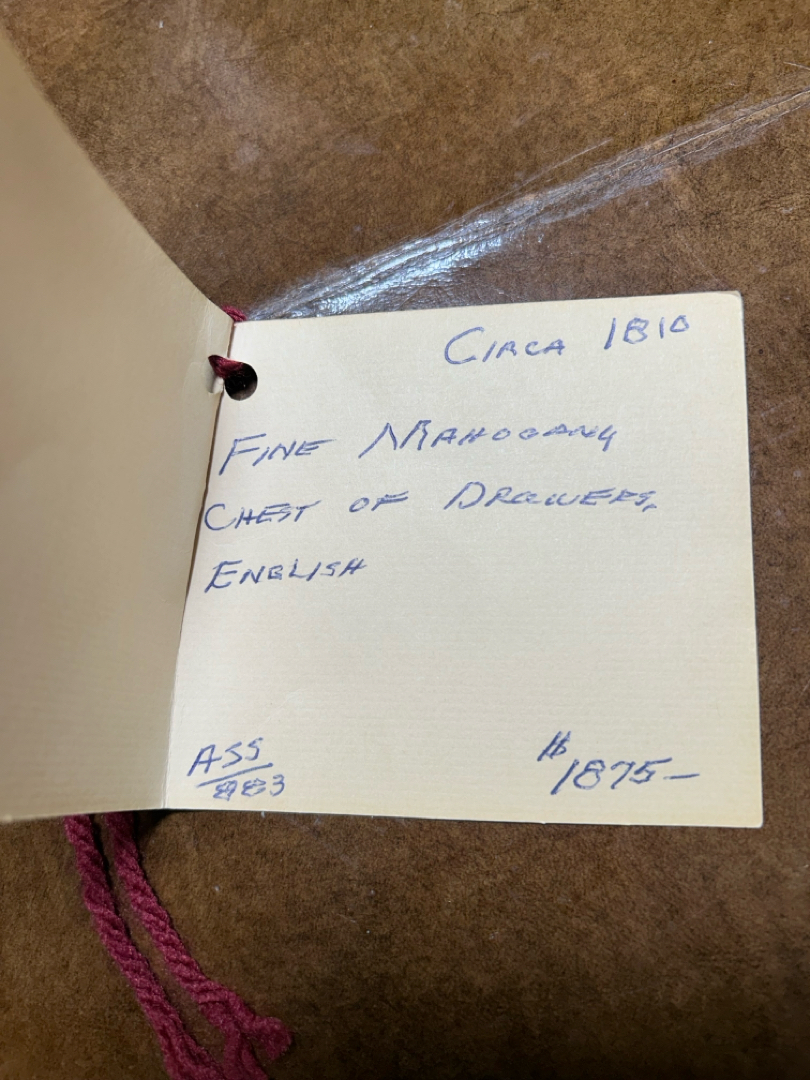 CIRCA 1810
FINE MAHOGANY
CHEST OF DRAWERS,
ENGLISH
ASS
883
$1875—